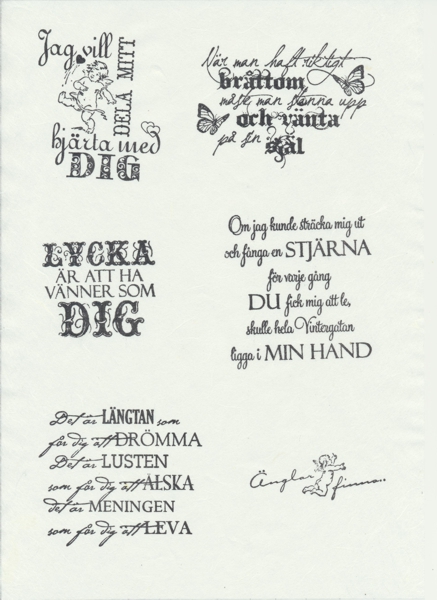 Jag vill
DELA MITT
hjärta med
DIG
När man haft riktigt
bråttom
måste man stanna upp
och vänta
på sin
själ
LYCKA
ÄR ATT HA
VÄNNER SOM
DIG
Om jag kunde sträcka mig ut
och fånga en STJÄRNA
för varje gång
DU fick mig att le,
skulle hela Vintergatan
ligga i MIN HAND
Det är LÄNGTAN som
för dig att DRÖMMA
Det är LUSTEN
som för dig att ÄLSKA
det är MENINGEN
som för dig att LEVA
Änglar finns..